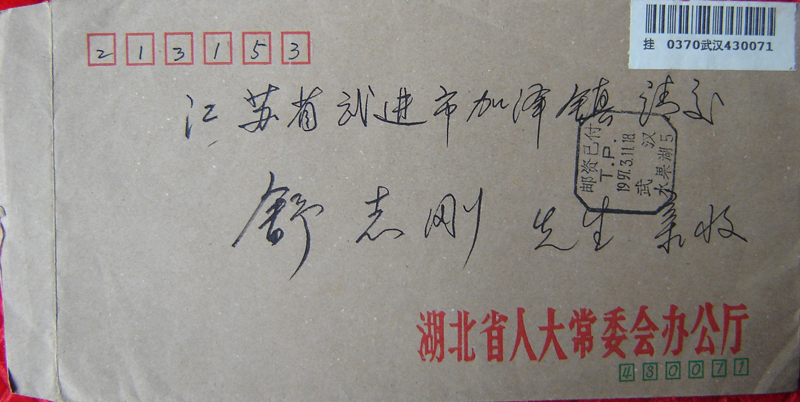 挂 0370武汉430071
213153
江苏省武进市加泽镇请交
邮资已付
T.P.
1997.3.11.18
武汉
水果湖5
舒志刚 先生 亲收
湖北省人大常委会办公厅
430071